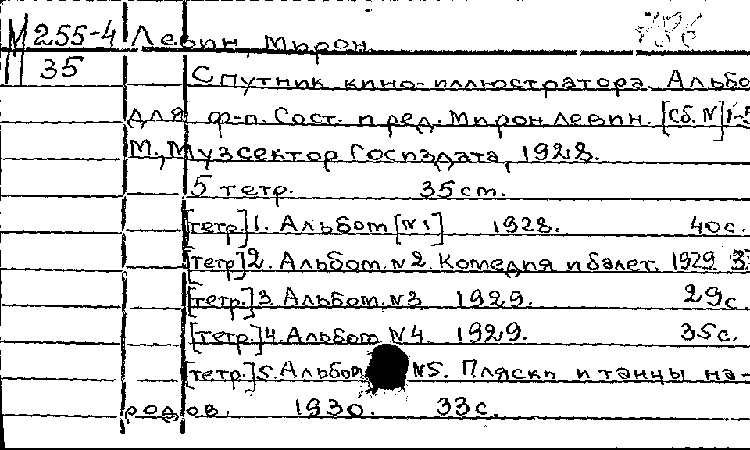 М 255-4 Левин, Мирон.
35 Спутник кино-иллюстратора. Альбо
для ф-п. Сост. и ред. Мирон Левин. [Сб. №] 1-5
М., Музсектор Госиздата, 1928.
5 тетр. 35 см.
[тетр] 1. Альбом [№1] 1928. 40 с.
[тетр] 2. Альбом. №2. Комедия и балет. 1929 3
[тетр.] 3. Альбом. №3 1929. 29 с
[тетр.] 4. Альбом №4. 1929. 35 с.
[тетр.] 5. Альбом №5. Пляски и танцы на-
родов. 1930. 33 с.